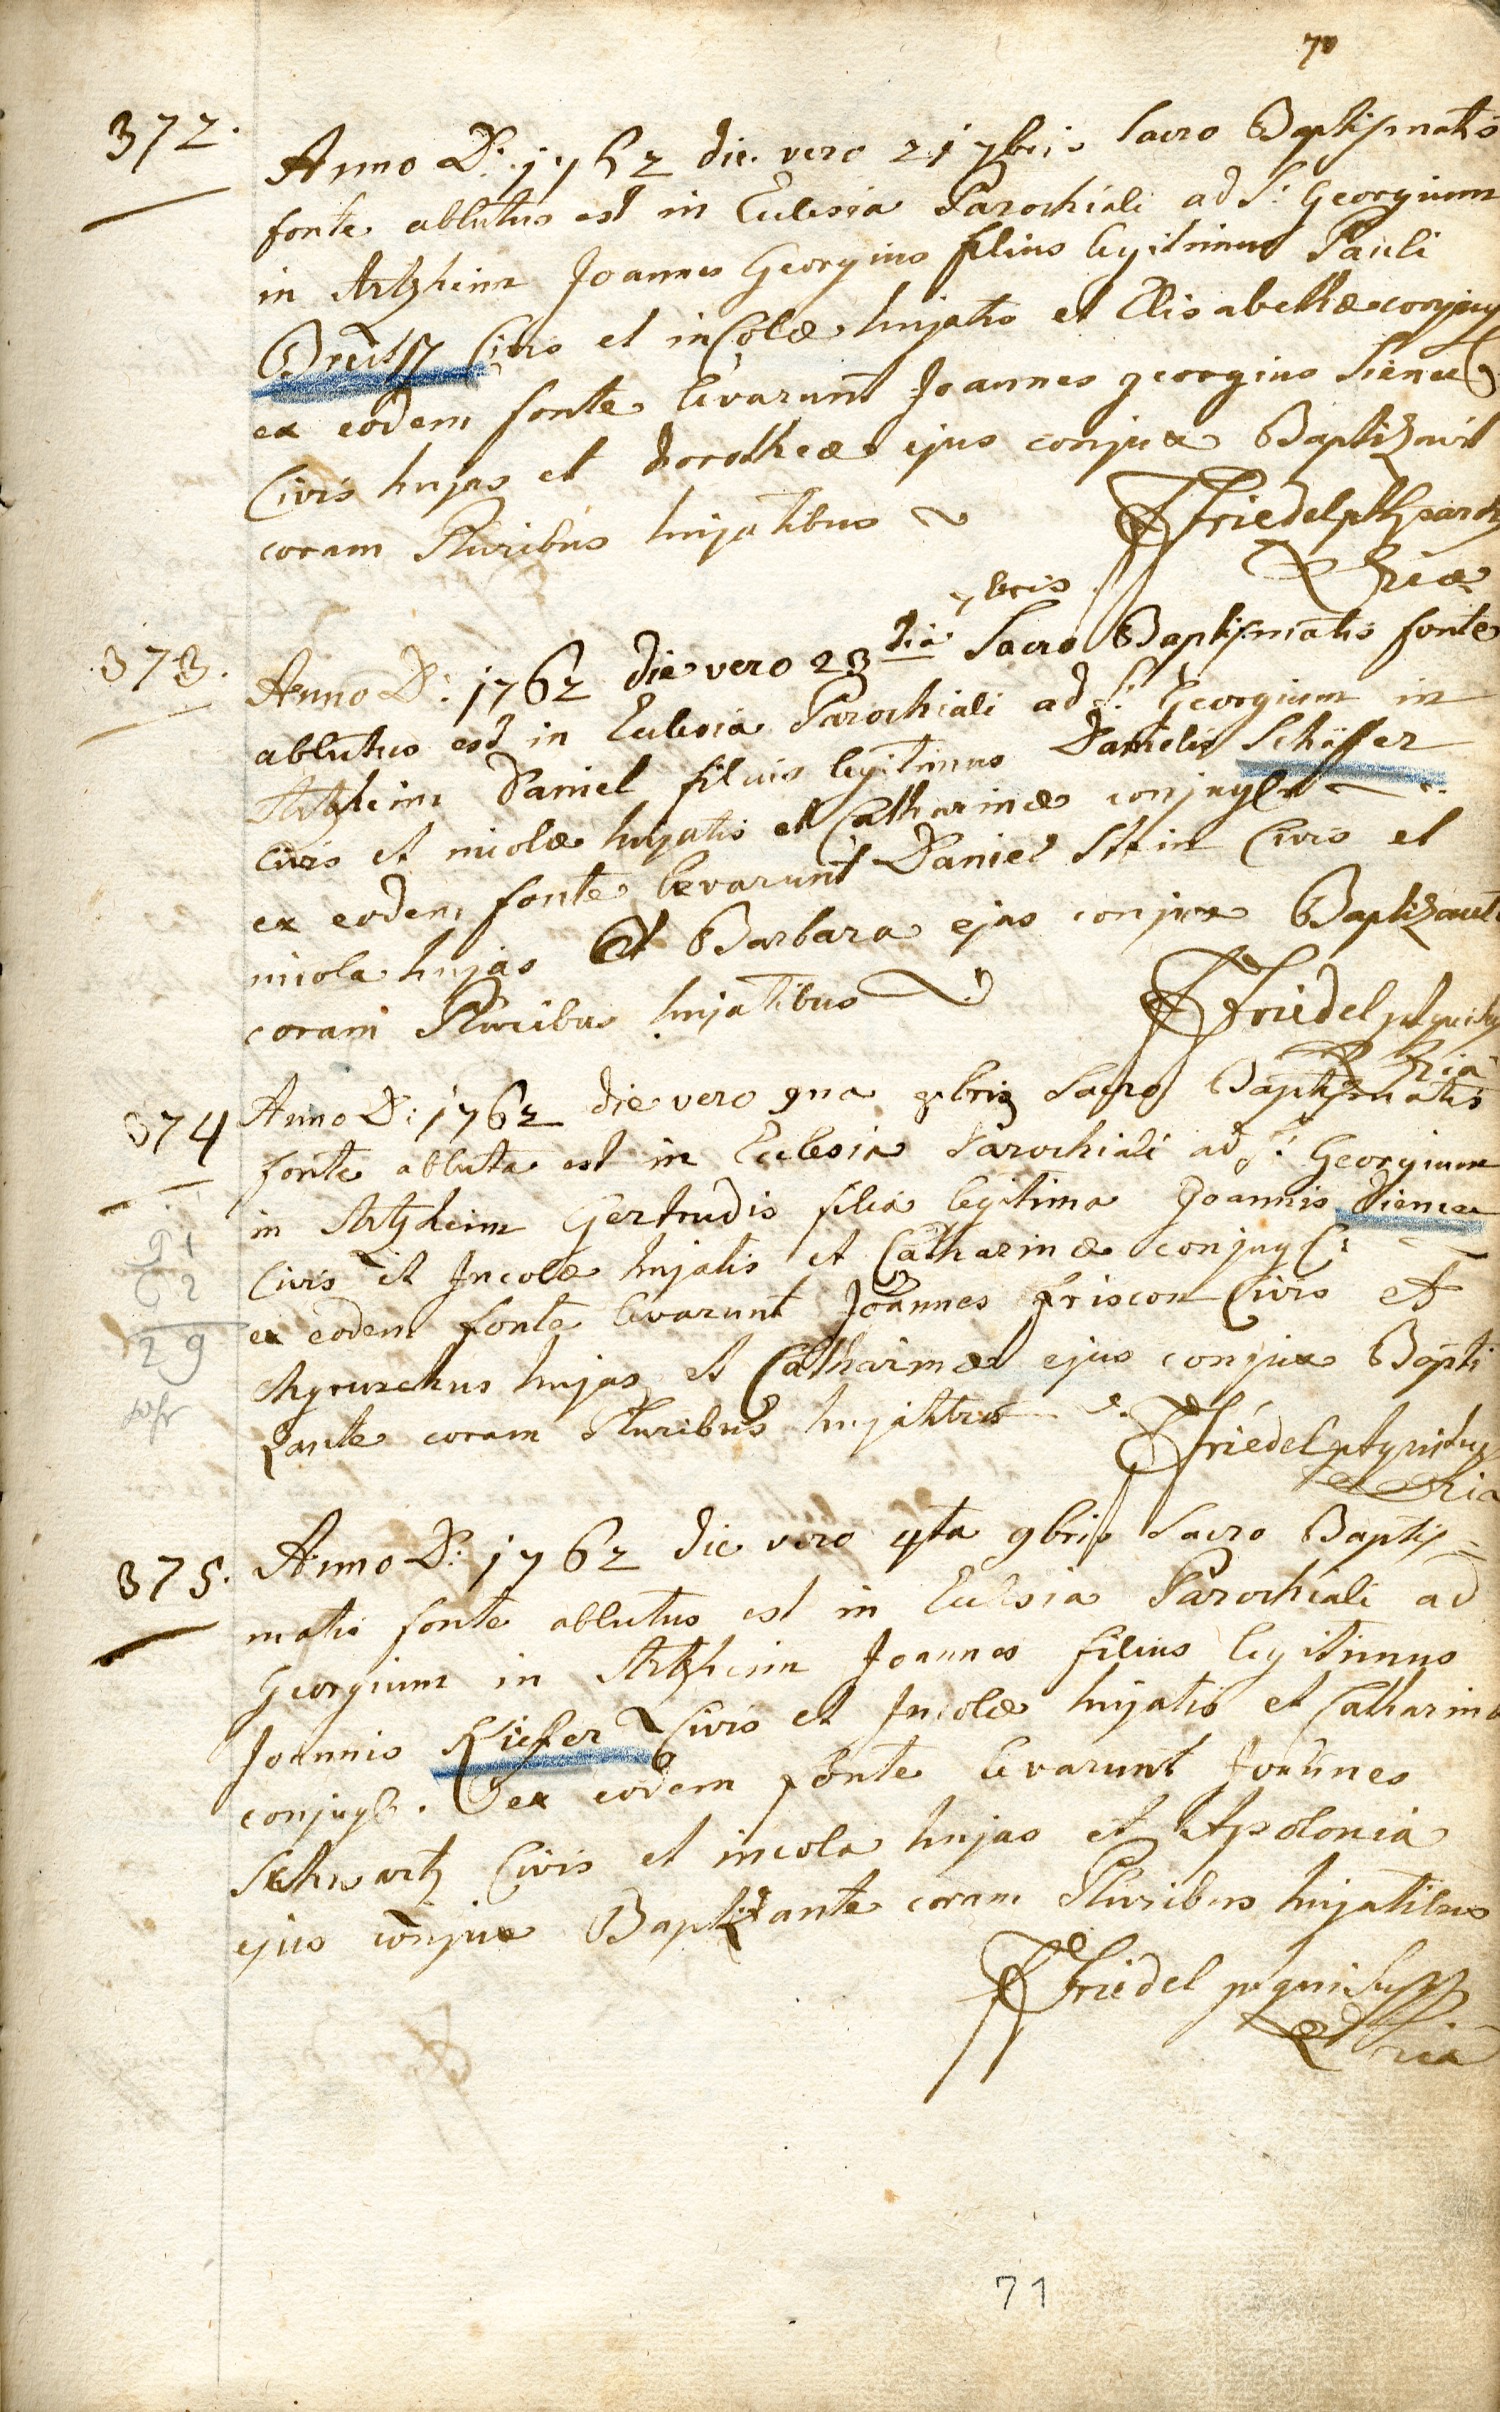 70
372.
Anno D: 1762 die vero 21 7bris Sacro Baptismatis
fonte ablutus est in Eclesia Parochiali ad S: Georgium
in Artzheim Joannes Georgius filius legitimus Pauli
Civis et incolæ hujatis et Elisabethæ conjug
ex eodem fonte levarunt Joannes georgius
Civis hujas et Dorotheæ ejus conjux Baptizavit
coram Pluribus hujatibus Friedel
7bris
373.
Anno D: 1762 die vero 23tia Sacro Baptismatis fonte
ablutus est in Eclesia Parochiali ad S: Georgium in
Artzheim Daniel filius legitimus Danielis Schäffer
civis et incolæ hujatis et Catharinæ conjugū
ex eodem fonte levarunt Daniel Stein Civis et
incola hujas et Barbara ejus conjux Baptizante
coram Pluribus hujatibus Friedel
374
Anno D: 1762 die vero 9na 8bris Sacro Baptismatis
fonte abluta est in Eclesia Parochiali ad S: Georgium
in Artzheim Gertrudis filia legitima Joannis
Civis et Incolæ hujatis et Catharinæ conjug:
ex eodem fonte levarunt Joannes Friscon Civis et
chyrurchus hujas et Catharinæ ejus conjux Bapti
zante coram Pluribus hujatibus Friedel
91
62
29
375.
Anno D: 1762 die vero 4ta 9bris Sacro Baptis=
matis fonte ablutus est in Eclesia Parochiali ad
Georgium in Artzheim Joannes filius legitimus
Joannis Kiefer Civis et Incolæ hujatis et Catharinæ
conjugū. ex eodem fonte levarunt Joannes
Schwartz Civis et incola hujas et Apolonia
ejus conjux Baptizante coram Pluribus hujatibus
Friedel
71